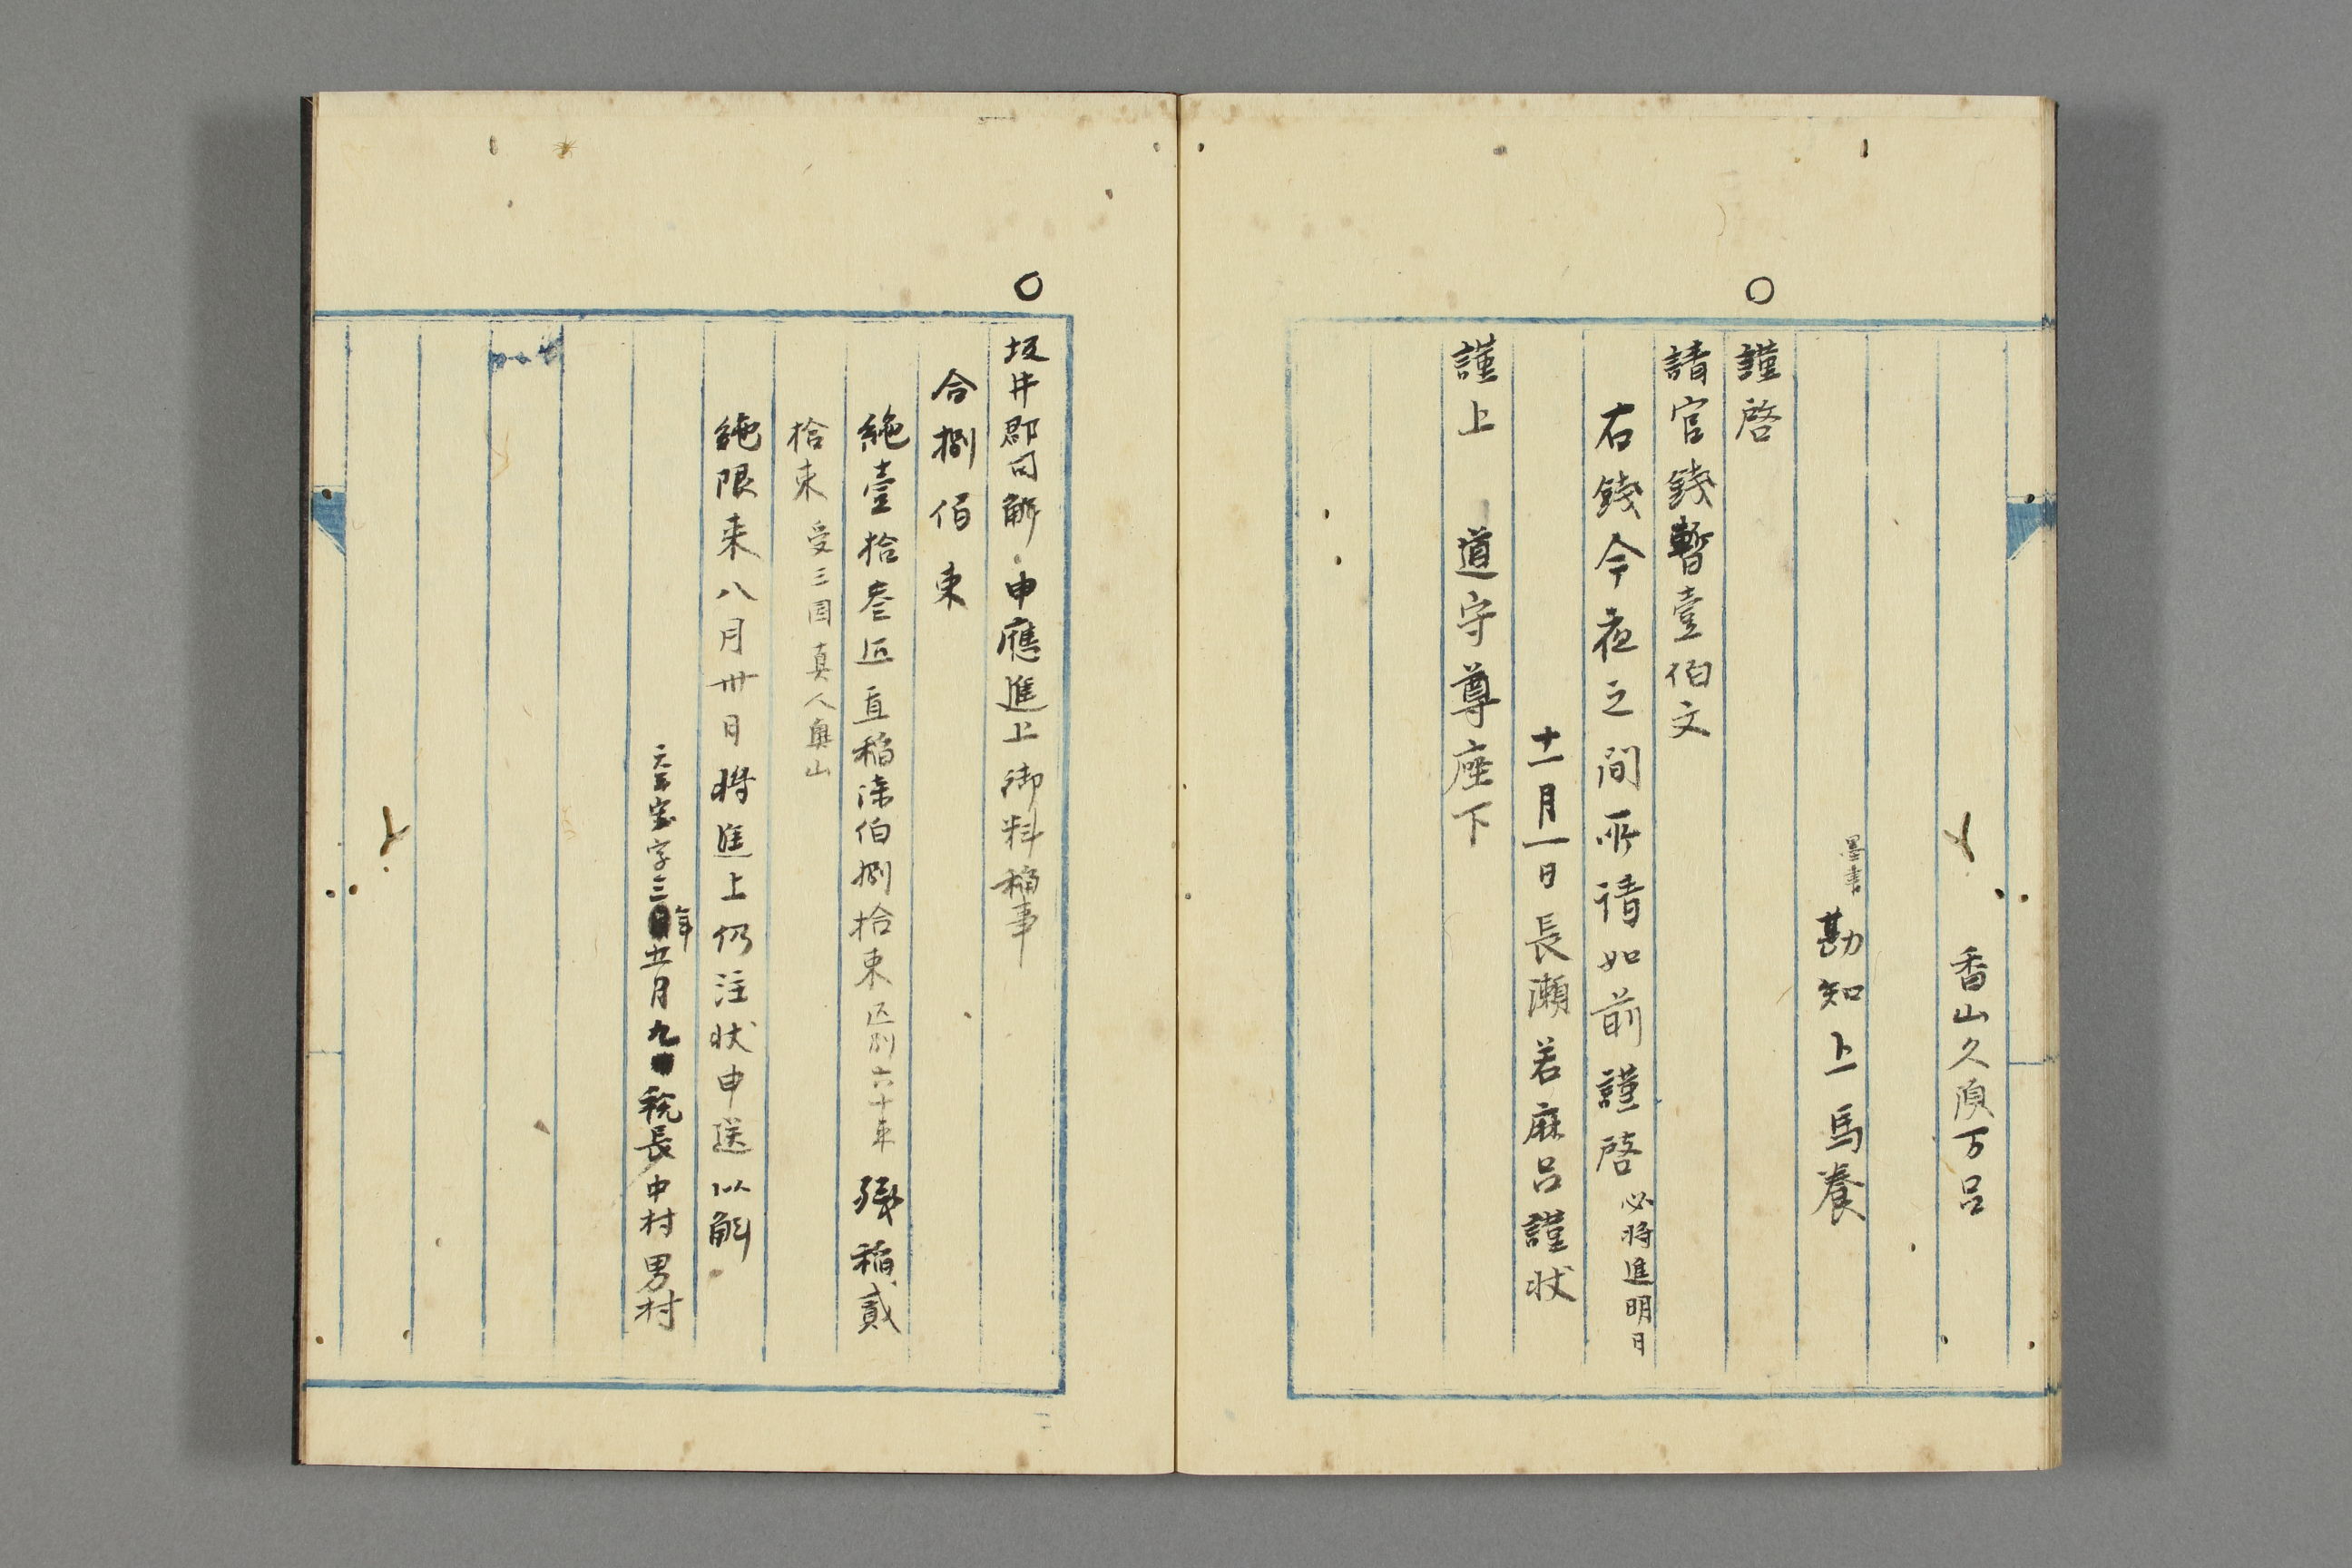 香山久須万呂
墨書
勘知上馬養
○
謹啓
請官錢暫壹伯文
右錢今夜之間所請如前謹啓 必将進明日
十一月一日長瀬若麻呂謹状
謹上 道守尊座下
○
坂井郡司解 申應進上御料稲事
合捌佰束
絁壹拾叁匹直稲漆伯捌拾束 匹別六十束 残稲貳
拾束 受三国真人奥山
絁限来八月卅日将進上仍注状申送以解
天平宝字三年五月九 税長中村男村